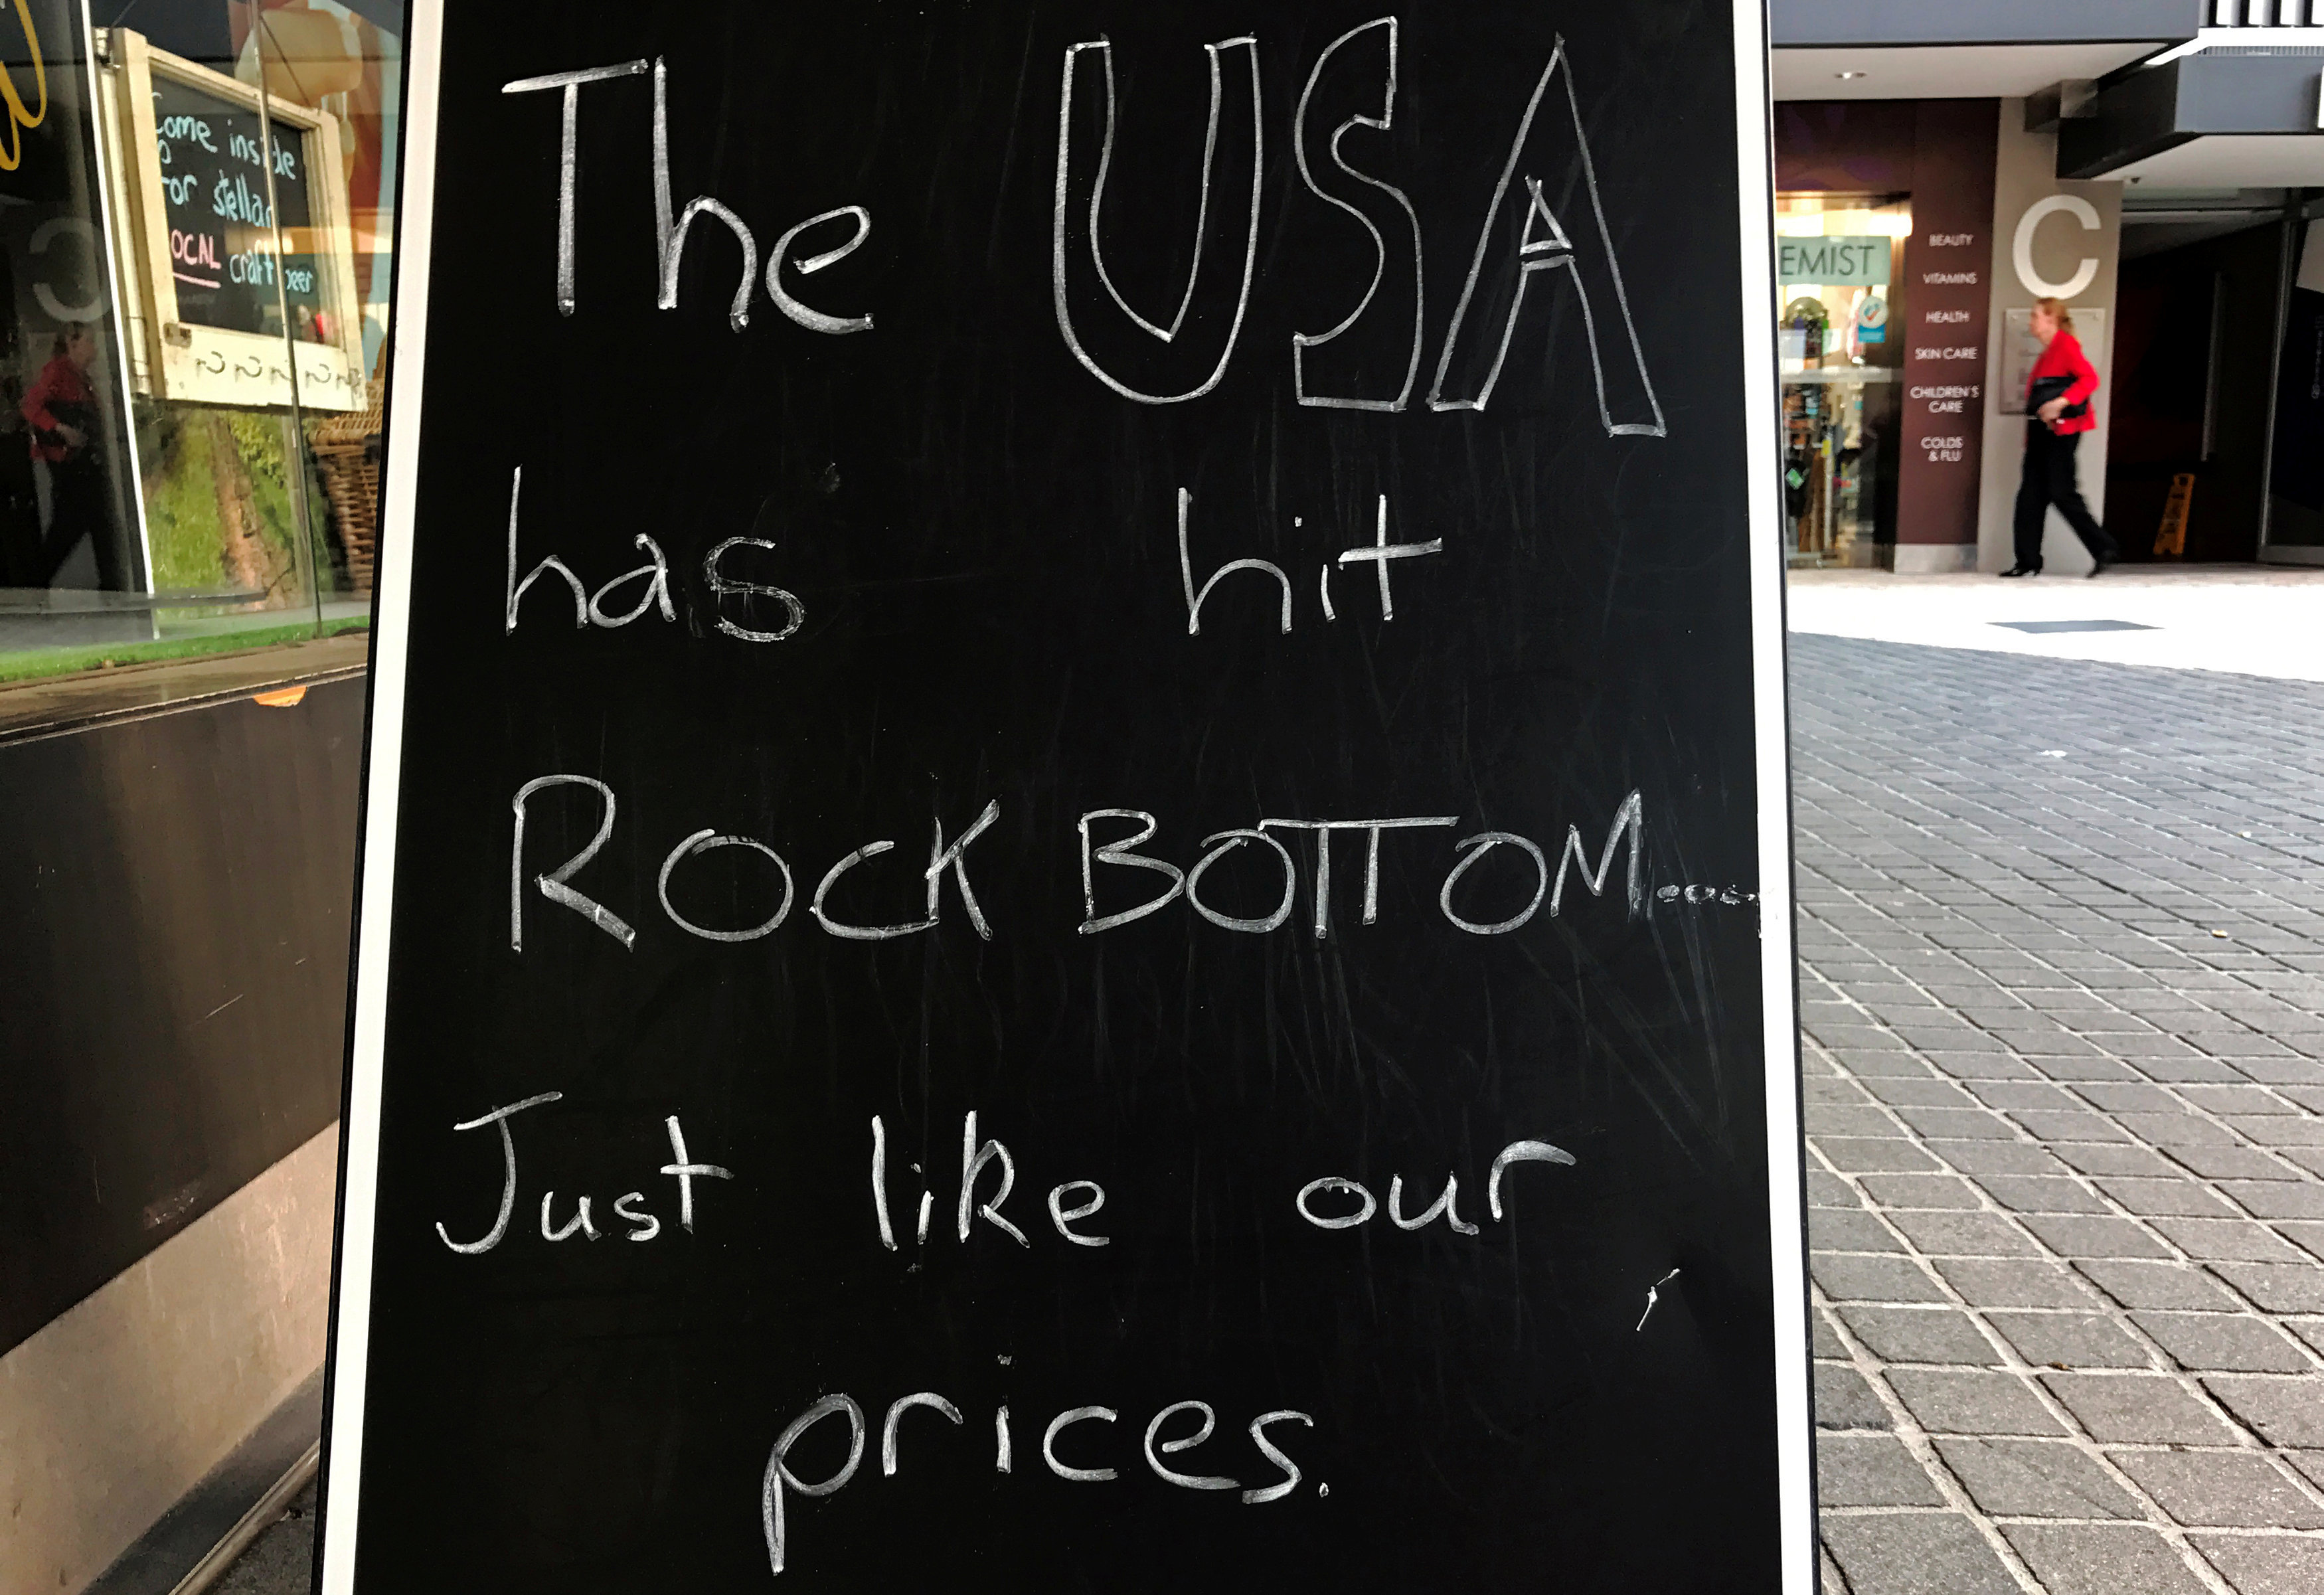 The USA
has hit
ROCK BOTTOM.....
Just like our
prices.
come inside
for stellar
LOCAL craft beer
EMIST
BEAUTY
VITAMINS
HEALTH
SKIN CARE
CHILDREN'S
CARE
COLDS
& FLU
C